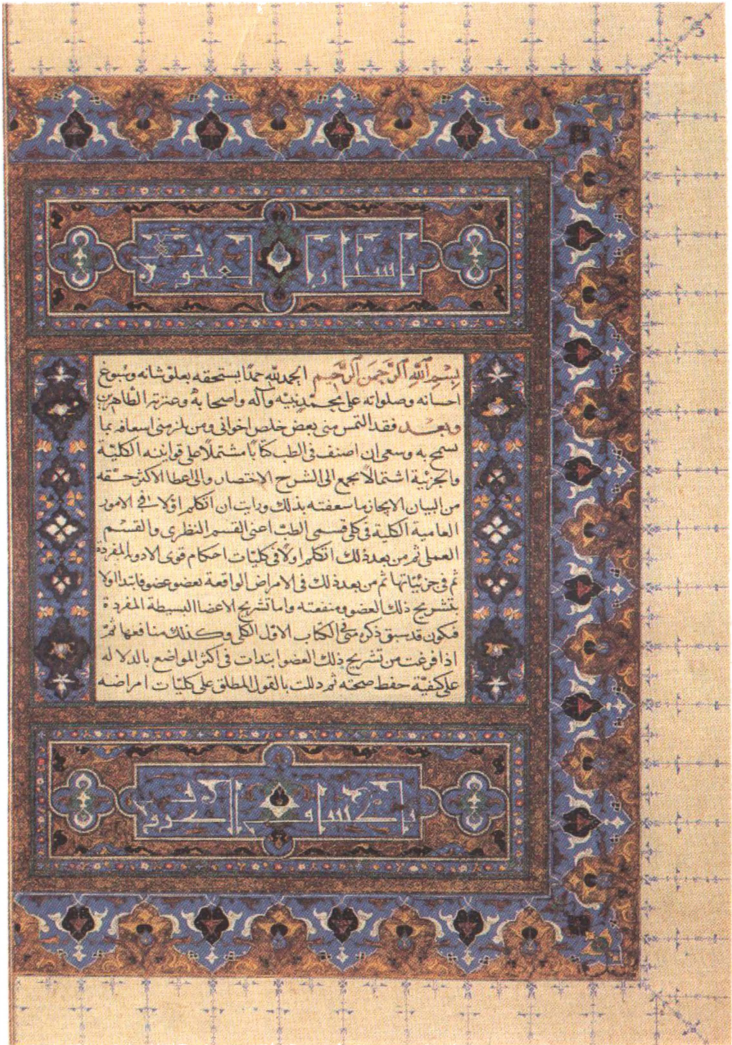 بسم الله الرحمن الرحيم الحمد لله حمدا يستحقه بعلو شانه وسبوغ
احسانه وصلواته على محمد نبيه وآله واصحابه وعترته الطاهرين
وبعد فقد التمس منى بعض خلص اخوانى ومن يلزمنى اسعافه بما
يسمح به وسعى ان اصنف فى الطب كتابا مشتملا على قوانينه الكلية
والجزئية اشتمالا يجمع الى الشرح الاختصار والى اعطا الاكثر حقه
من البيان الايجاز فاسعفته بذلك ورايت ان اتكلم اولا فى الامور
العامية الكلية فى كلى قسمى الطب اعنى القسم النظرى والقسم
العملى ثم من بعد ذلك اتكلم اولا فى كليات احكام قوى الادوية المفردة
ثم فى جزئياتها ثم من بعد ذلك فى الامراض الواقعة بعضو عضو فابتدا اولا
بتشريح ذلك العضو ومنفعته واما تشريح الاعضا البسيطة المفردة
فيكون قد سبق ذكره منى فى الكتاب الاول الكلى وكذلك منافعها ثم
اذا فرغت من تشريح ذلك العضو ابتدات فى اكثر المواضع بالدلالة
على كيفية حفظ صحته ثم دللت بالقول المطلق على كليات امراضه